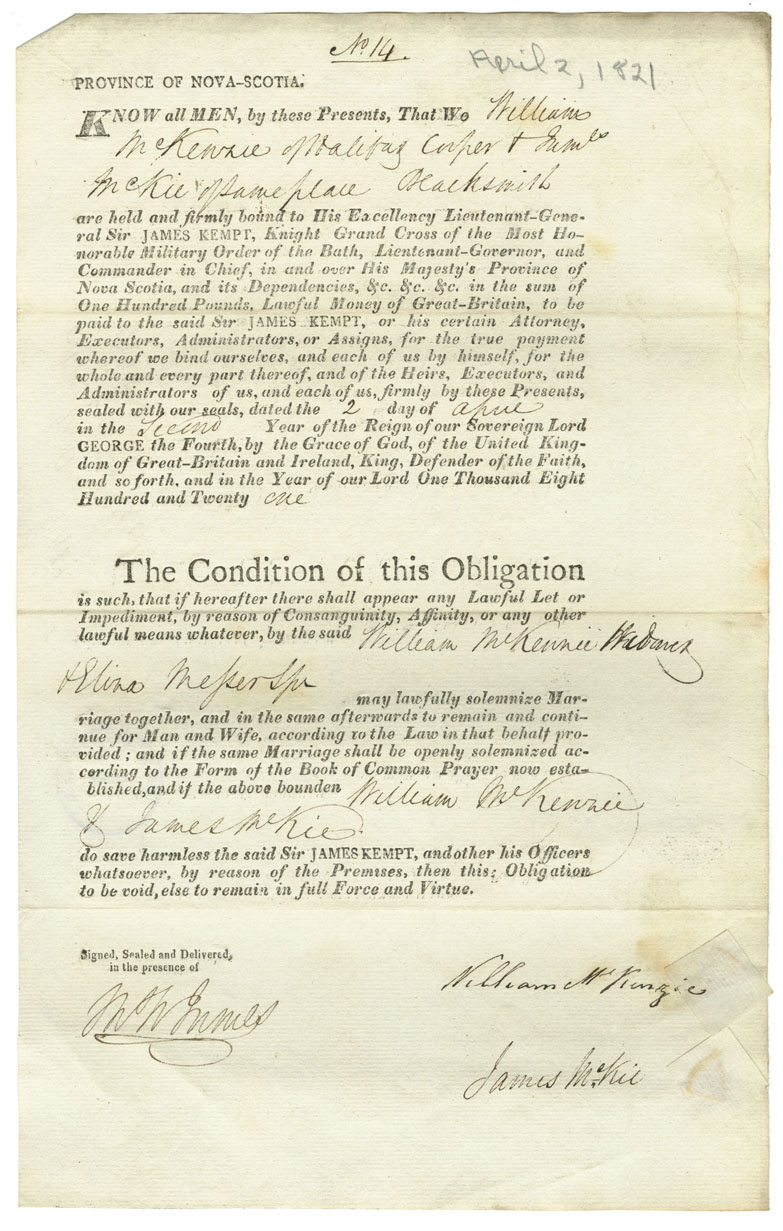 No. 14.
April 2, 1821
PROVINCE OF NOVA-SCOTIA.
KNOW all MEN, by these Presents, That We William
McKenzie of Halifax Cooper & James
McKie of same place Blacksmith
are held and firmly bound to His Excellency Lieutenant-Gene-
ral Sir JAMES KEMPT, Knight Grand Cross of the Most Ho-
norable Military Order of the Bath, Lieutenant-Governor, and
Commander in Chief, in and over His Majesty's Province of
Nova Scotia, and its Dependencies, &c. &c. &c. in the sum of
One Hundred Pounds, Lawful Money of Great-Britain, to be
paid to the said Sir JAMES KEMPT, or his certain Attorney,
Executors, Administrators, or Assigns, for the true payment
whereof we bind ourselves, and each of us by himself, for the
whole and every part thereof, and of the Heirs, Executors, and
Administrators of us, and each of us, firmly by these Presents,
sealed with our seals, dated the 2 day of April
in the Second Year of the Reign of our Sovereign Lord
GEORGE the Fourth, by the Grace of God, of the United King-
dom of Great-Britain and Ireland, King, Defender of the Faith,
and so forth, and in the Year of our Lord One Thousand Eight
Hundred and Twenty one
The Condition of this Obligation
is such, that if hereafter there shall appear any Lawful Let or
Impediment, by reason of Consanguinity, Affinity, or any other
lawful means whatever, by the said William McKenzie
& Eliza Messer Spr
may lawfully solemnize Mar-
riage together, and in the same afterwards to remain and conti-
nue for Man and Wife, according to the Law in that behalf pro-
vided; and if the same Marriage shall be openly solemnized ac-
cording to the Form of the Book of Common Prayer now esta-
blished, and if the above bounden William McKenzie
& James McKie
do save harmless the said Sir JAMES KEMPT, and other his Officers
whatsoever, by reason of the Premises, then this Obligation
to be void, else to remain in full Force and Virtue.
Signed, Sealed and Delivered,
in the presence of
William McKenzie
James McKie